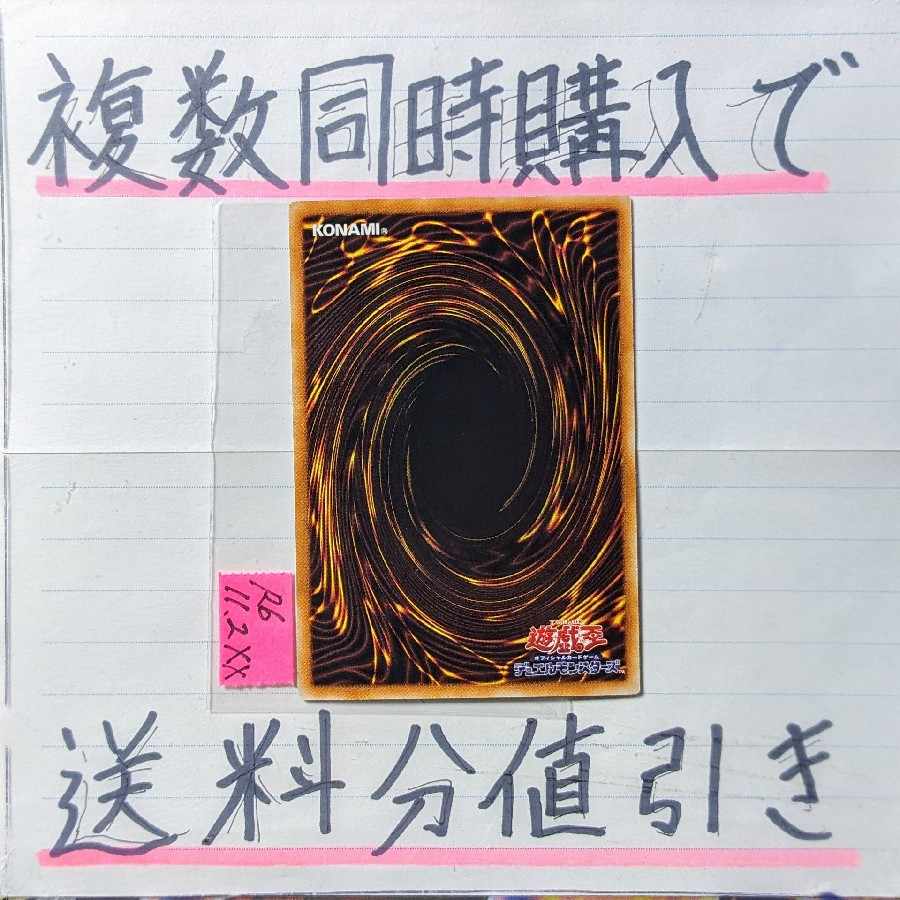 複数同時購入で
KONAMI®
R6
11.2 XX
遊戯王
オフィシャルカードゲーム
デュエルモンスターズ
送料分値引き